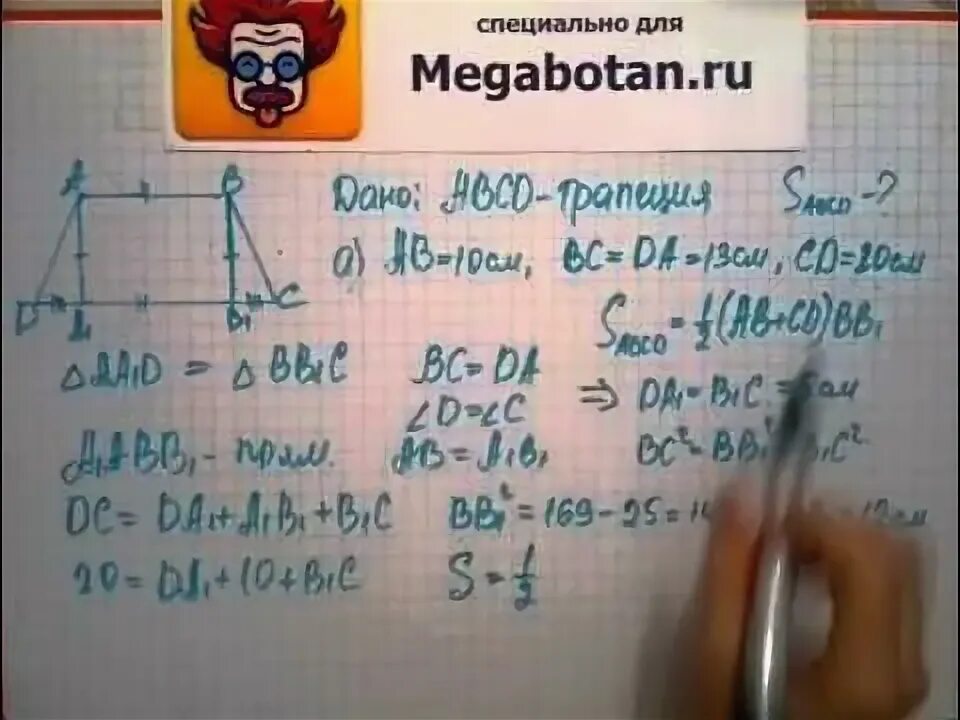 специально для
Megabotan.ru
A B
D A₁ B₁ C
Дано: ABCD-трапеция S_ABCD-?
а) AB=10см, BC=DA=13см, CD=20см
S_ABCD=½(AB+CD)BB₁
△AA₁D = △BB₁C BC=DA
∠D=∠C ⇒ DA₁=B₁C=5см
A₁ABB₁-прям. AB=A₁B₁ BC²=BB₁² B₁C²
DC=DA₁+A₁B₁+B₁C BB₁²=169-25=
20=DA₁+10+B₁C S=½